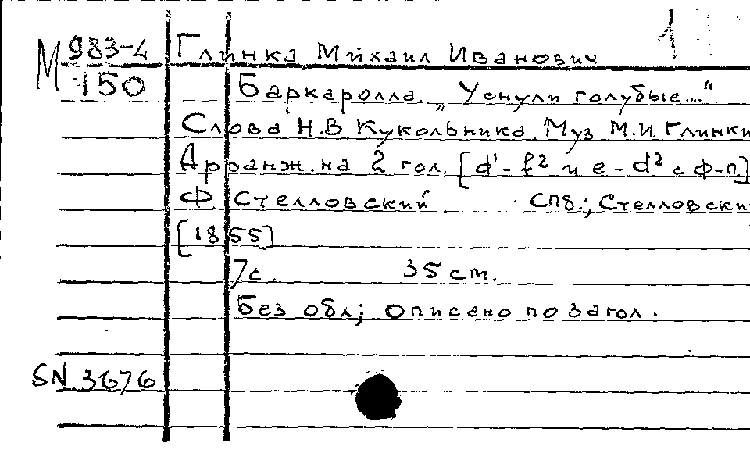 М 983-4 Глинка Михаил Иванович 1
150 Баркаролла „Уснули голубые..."
Слова Н.В Кукольника. Муз М.И. Глинки
Арранж. на 2 гол. [d¹-f² и e-d² с ф-п]
Ф. Стелловский СПб.; Стелловски
[1855]
7с. 35 cm.
Без обл; описано по загол.
SN 3676